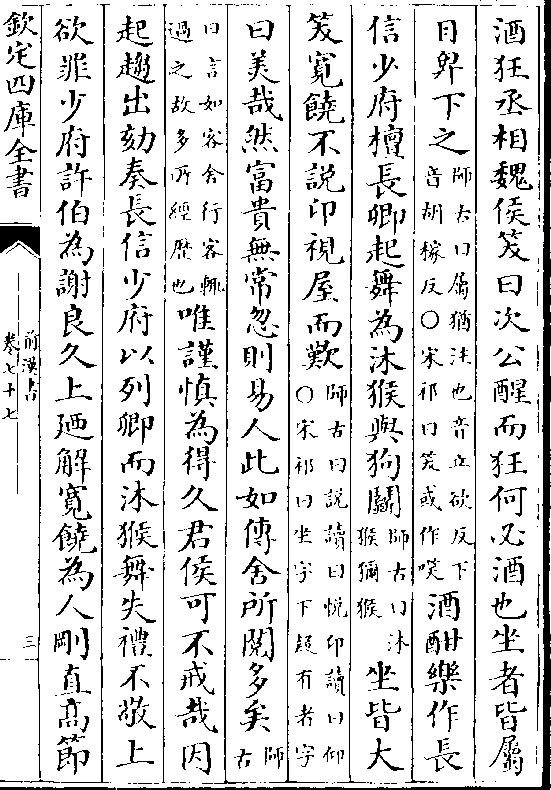 酒狂丞相魏侯笑曰次公醒而狂何必酒也坐者皆屬
目卑下之師古曰屬猶注也音之欲反下音胡稼反○宋祁曰笑或作㗛酒酣樂作長
信少府檀長卿起舞為沐猴與狗鬭師古曰沐猴獼猴坐皆大
笑寛饒不說卬視屋而歎師古曰說讀曰悅卬讀曰仰○宋祁曰坐字下疑有者字
曰美哉然富貴無常忽則易人此如傳舍所閱多矣師古
曰言如客舍行客輒過之故多所經歷也唯謹慎為得久君侯可不戒哉因
起趨出劾奏長信少府以列卿而沐猴舞失禮不敬上
欲罪少府許伯為謝良久上廼解寛饒為人剛直髙節
欽定四庫全書
前漢書
卷七十七
三